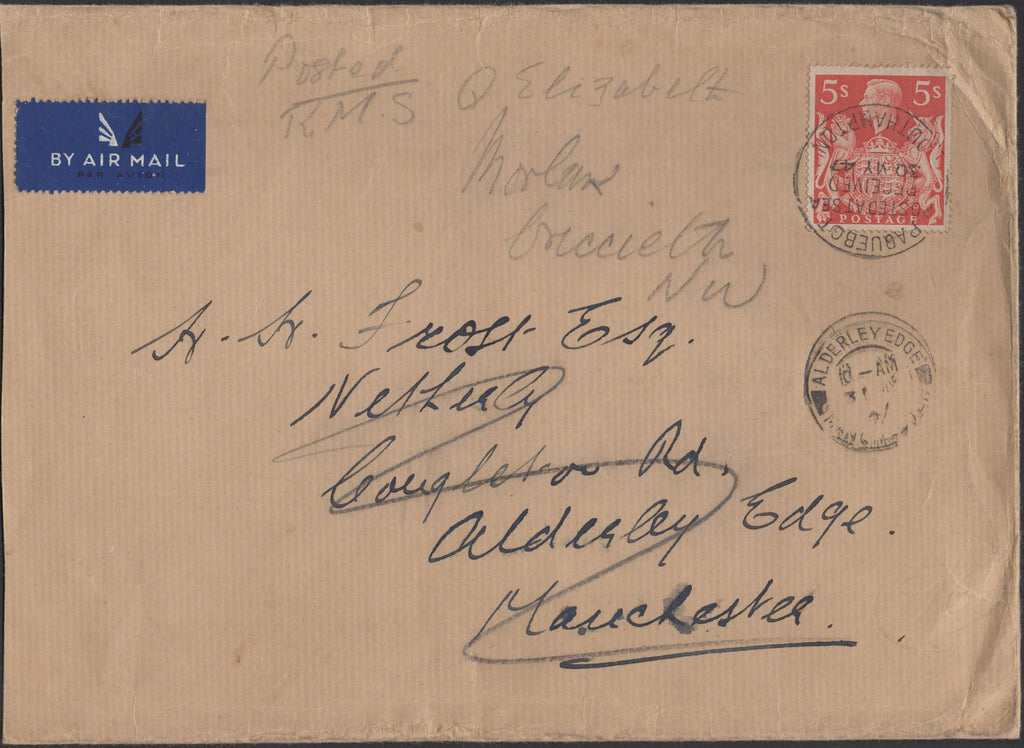 Posted
R.M.S Q Elizabeth
BY AIR MAIL
PAR AVION
5s 5s
POSTAGE
PAQUEBOT
POSTED AT SEA
RECEIVED
30 MY 47
SOUTHAMPTON
Criccieth
NW
ALDERLEY EDGE
AM
H. H. Frost Esq.
Netherly
Congleton Rd.
Alderley Edge.
Manchester.